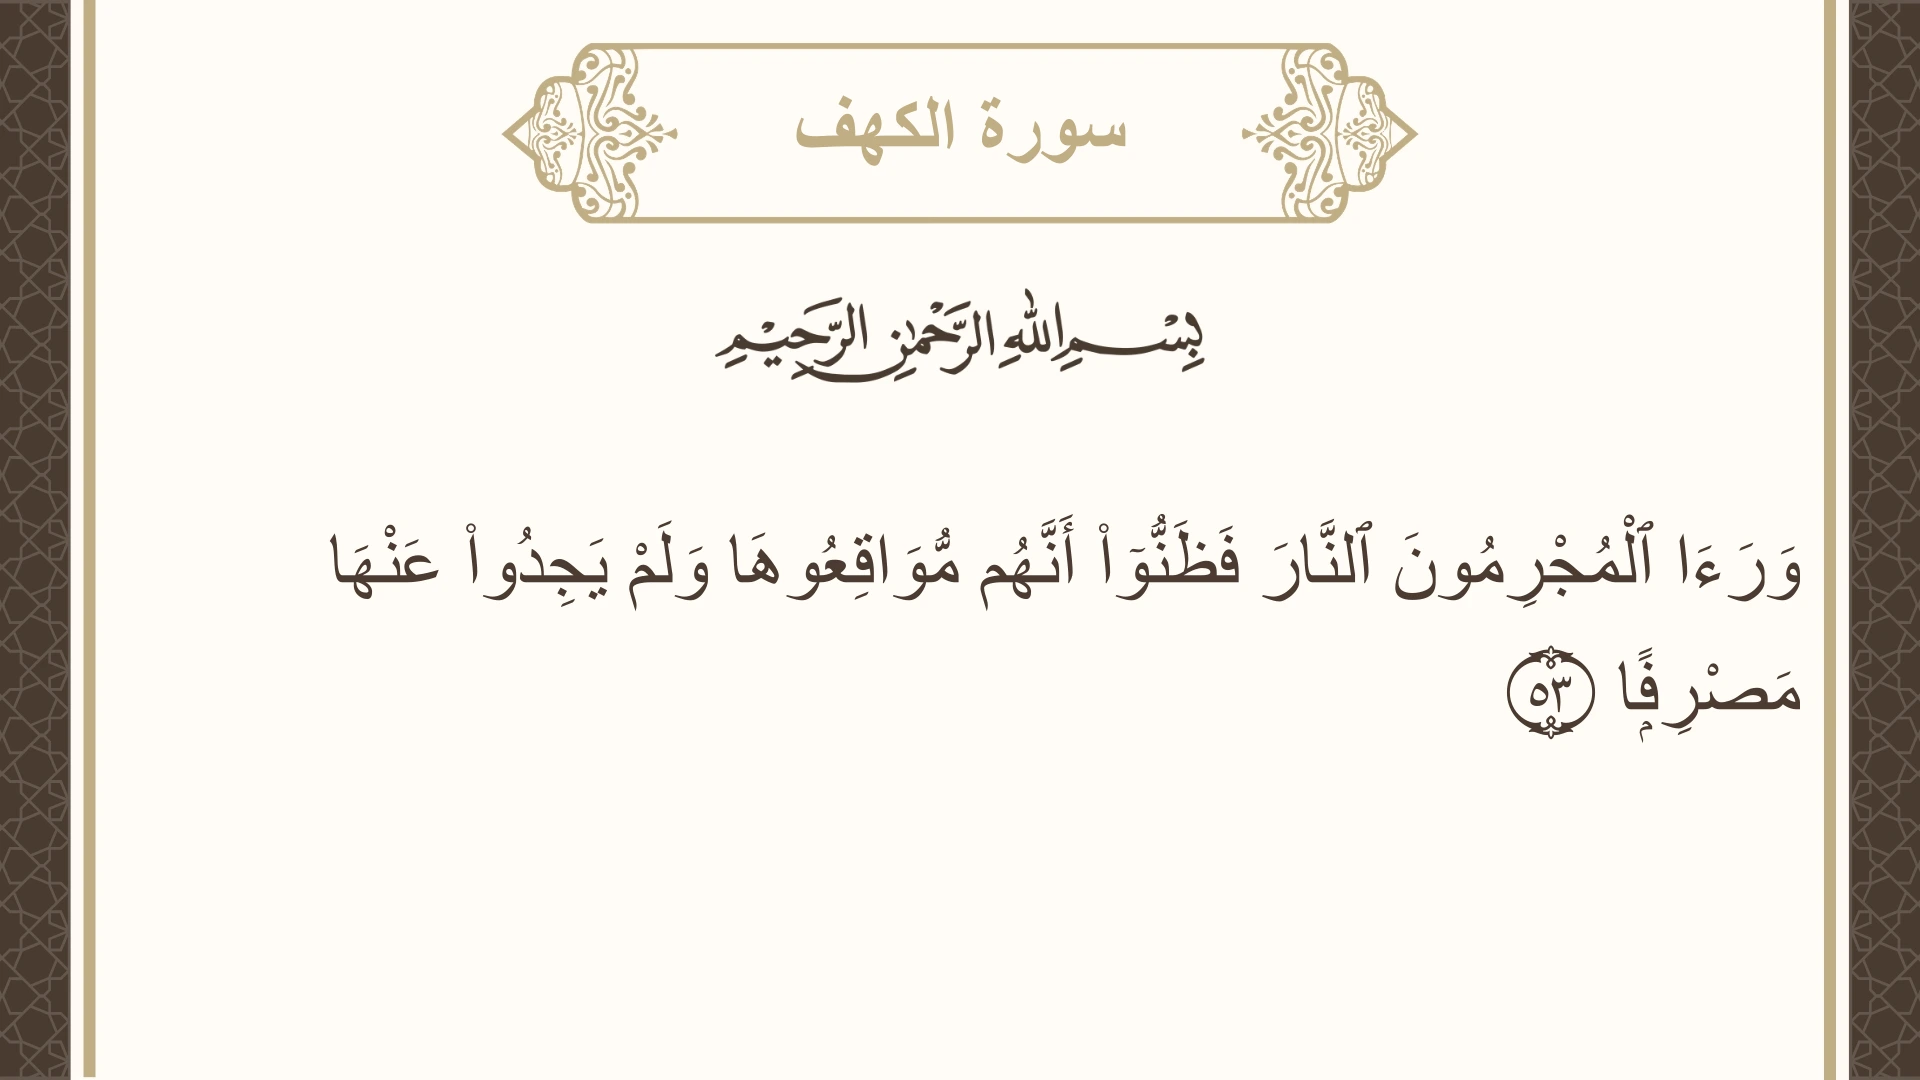 سورة الكهف
بِسْمِ اللهِ الرَّحْمٰنِ الرَّحِيْمِ
وَرَءَا ٱلْمُجْرِمُونَ ٱلنَّارَ فَظَنُّوٓا۟ أَنَّهُم مُّوَاقِعُوهَا وَلَمْ يَجِدُوا۟ عَنْهَا
مَصْرِفًۭا ۝٥٣